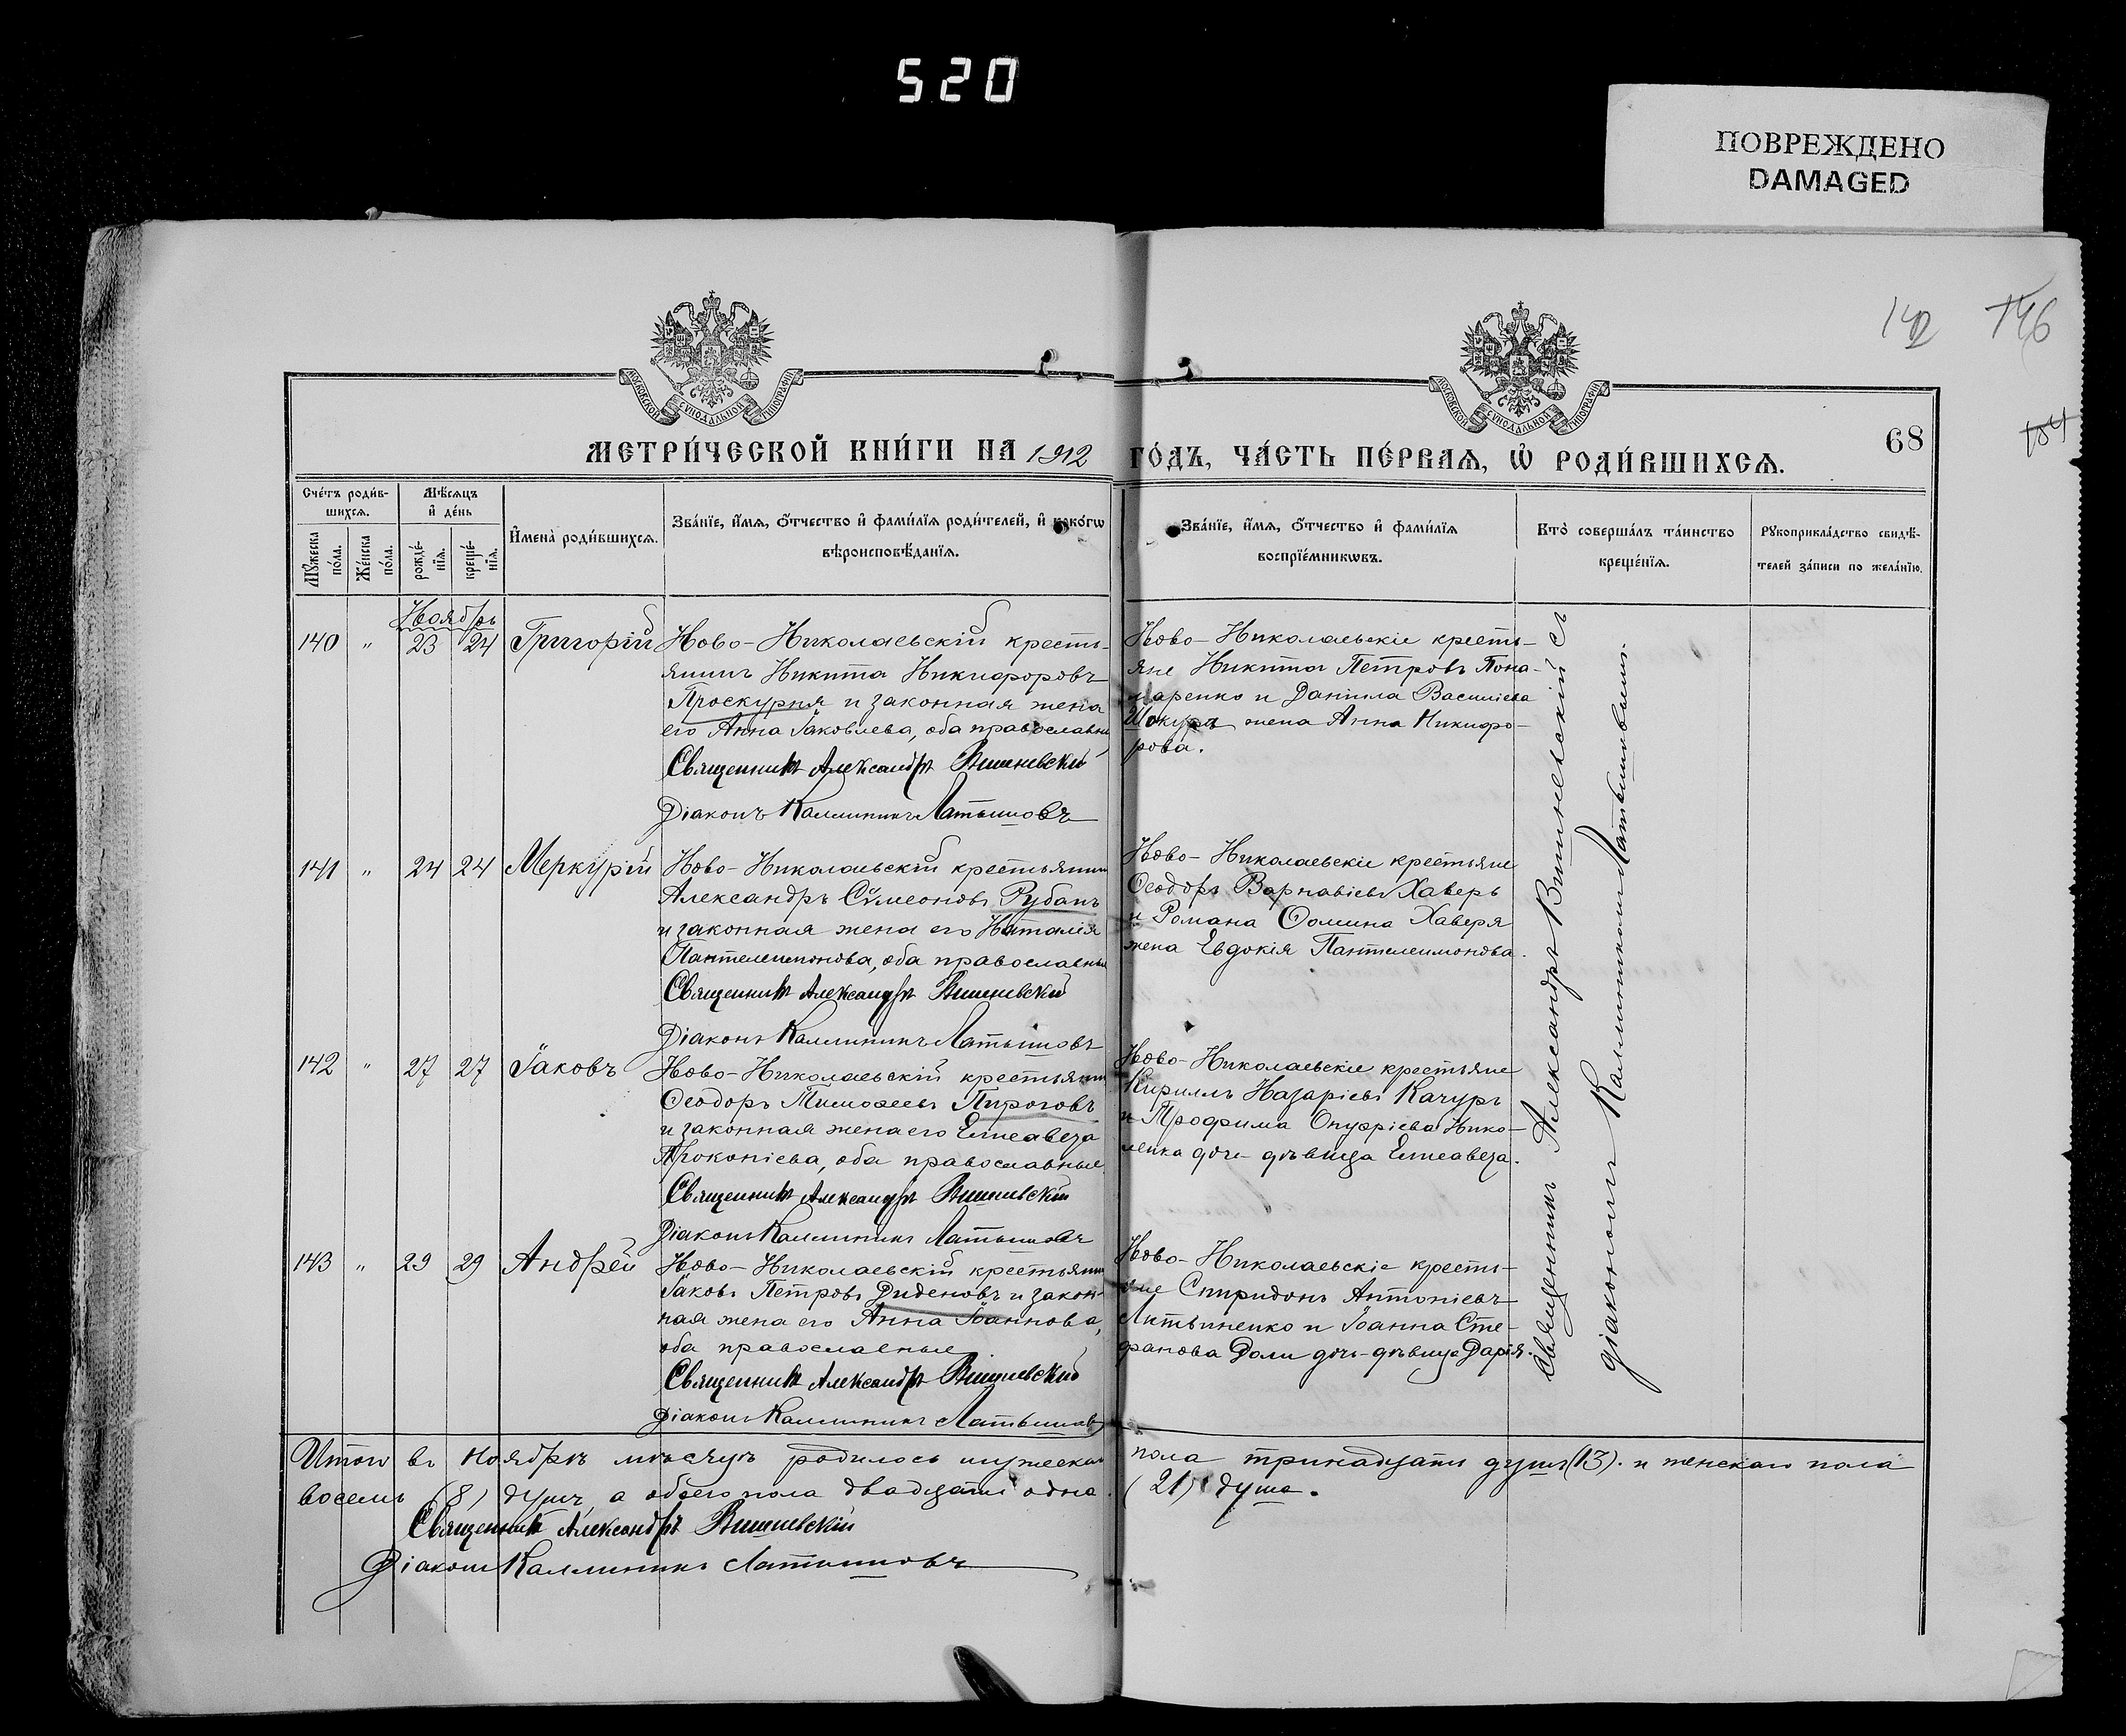 520
ПОВРЕЖДЕНО
DAMAGED
142 146
МОСКОВСКОЙ СУНОДАЛЬНОЙ ТИПОГРАФІИ
МОСКОВСКОЙ СУНОДАЛЬНОЙ ТИПОГРАФІИ
МЕТРИ́ЧЕСКОЙ КНИ́ГИ НА 1912
ГО́ДЪ, ЧА́СТЬ ПЕ́РВАѦ, Ѡ҆ РОДИ́ВШИХСѦ.
68
Сче́тъ роди́в-
шихсѧ.
Мѣ́сѧцъ
и҆ де́нь
Мꙋ́жеска по́ла.
Же́нска по́ла.
рожде́-
нїѧ.
креще́-
нїѧ.
И҆мена̀ роди́вшихсѧ.
Зва́нїе, и҆́мѧ, ѻ҆́тчество и҆ фами́лїѧ роди́телей, и҆ како́гѡ
вѣроисповѣ́данїѧ.
Зва́нїе, и҆́мѧ, ѻ҆́тчество и҆ фами́лїѧ
воспрїе́мникѡвъ.
Кто̀ соверша́лъ та́инство
креще́нїѧ.
Рꙋкоприкла́дство свидѣ́-
телей за́писи по жела́нїю.
Ноябрь
140 " 23 24 Григорій
Ново-Николаевскій кресть-
янинъ Никита Никифоровъ
Проскурня и законная жена
его Анна Іаковлева, оба православны
Священникъ Александръ Вишневскій
Діаконъ Каллиникъ Латышовъ
Ново-Николаевскіе кресть-
яне Никита Петровъ Пона-
маренко и Даніила Василіева
Шокура жена Анна Никифо-
рова.
141 " 24 24 Меркурій
Ново-Николаевскій крестьянин
Александръ Сѵмеоновъ Рубанъ
и законная жена его Наталія
Пантелеимонова, оба православные
Священникъ Александръ Вишневскій
Діаконъ Каллиникъ Латышовъ
Ново-Николаевскіе крестьяне
Ѳеодоръ Варнавіевъ Хаверь
и Романа Ѳомина Хаверя
жена Евдокія Пантелеимонова.
142 " 27 27 Іаковъ
Ново-Николаевскій крестьянин
Ѳеодоръ Тимоѳеевъ Пироговъ
и законная жена его Елисавета
Прокопіева, оба православные
Священникъ Александръ Вишневскій
Діаконъ Каллиникъ Латышовъ
Ново-Николаевскіе крестьяне
Кириллъ Назаріевъ Качуръ
и Трофима Онуфріева Нико-
ленка дочь дѣвица Елисавета.
143 " 29 29 Андрей
Ново-Николаевскій крестьянин
Іаковъ Петровъ Диденовъ и закон-
ная жена его Анна Іоаннова,
оба православные
Священникъ Александръ Вишневскій
Діаконъ Каллиникъ Латышовъ
Ново-Николаевскіе кресть-
яне Спиридонъ Антоніевъ
Литвиненко и Іоанна Сте-
фанова Доли дочь-дѣвица Дарія.
Священникъ Александръ Вишневскій съ
діакономъ Каллиникомъ Латышовымъ.
Итого въ ноябрѣ мѣсяцѣ родилось мужеска пола тринадцать душъ (13). и женскаго пола
восемь (8) душъ, а обоего пола двадцать одна (21) душа.
Священникъ Александръ Вишневскій
Діаконъ Каллиникъ Латышовъ